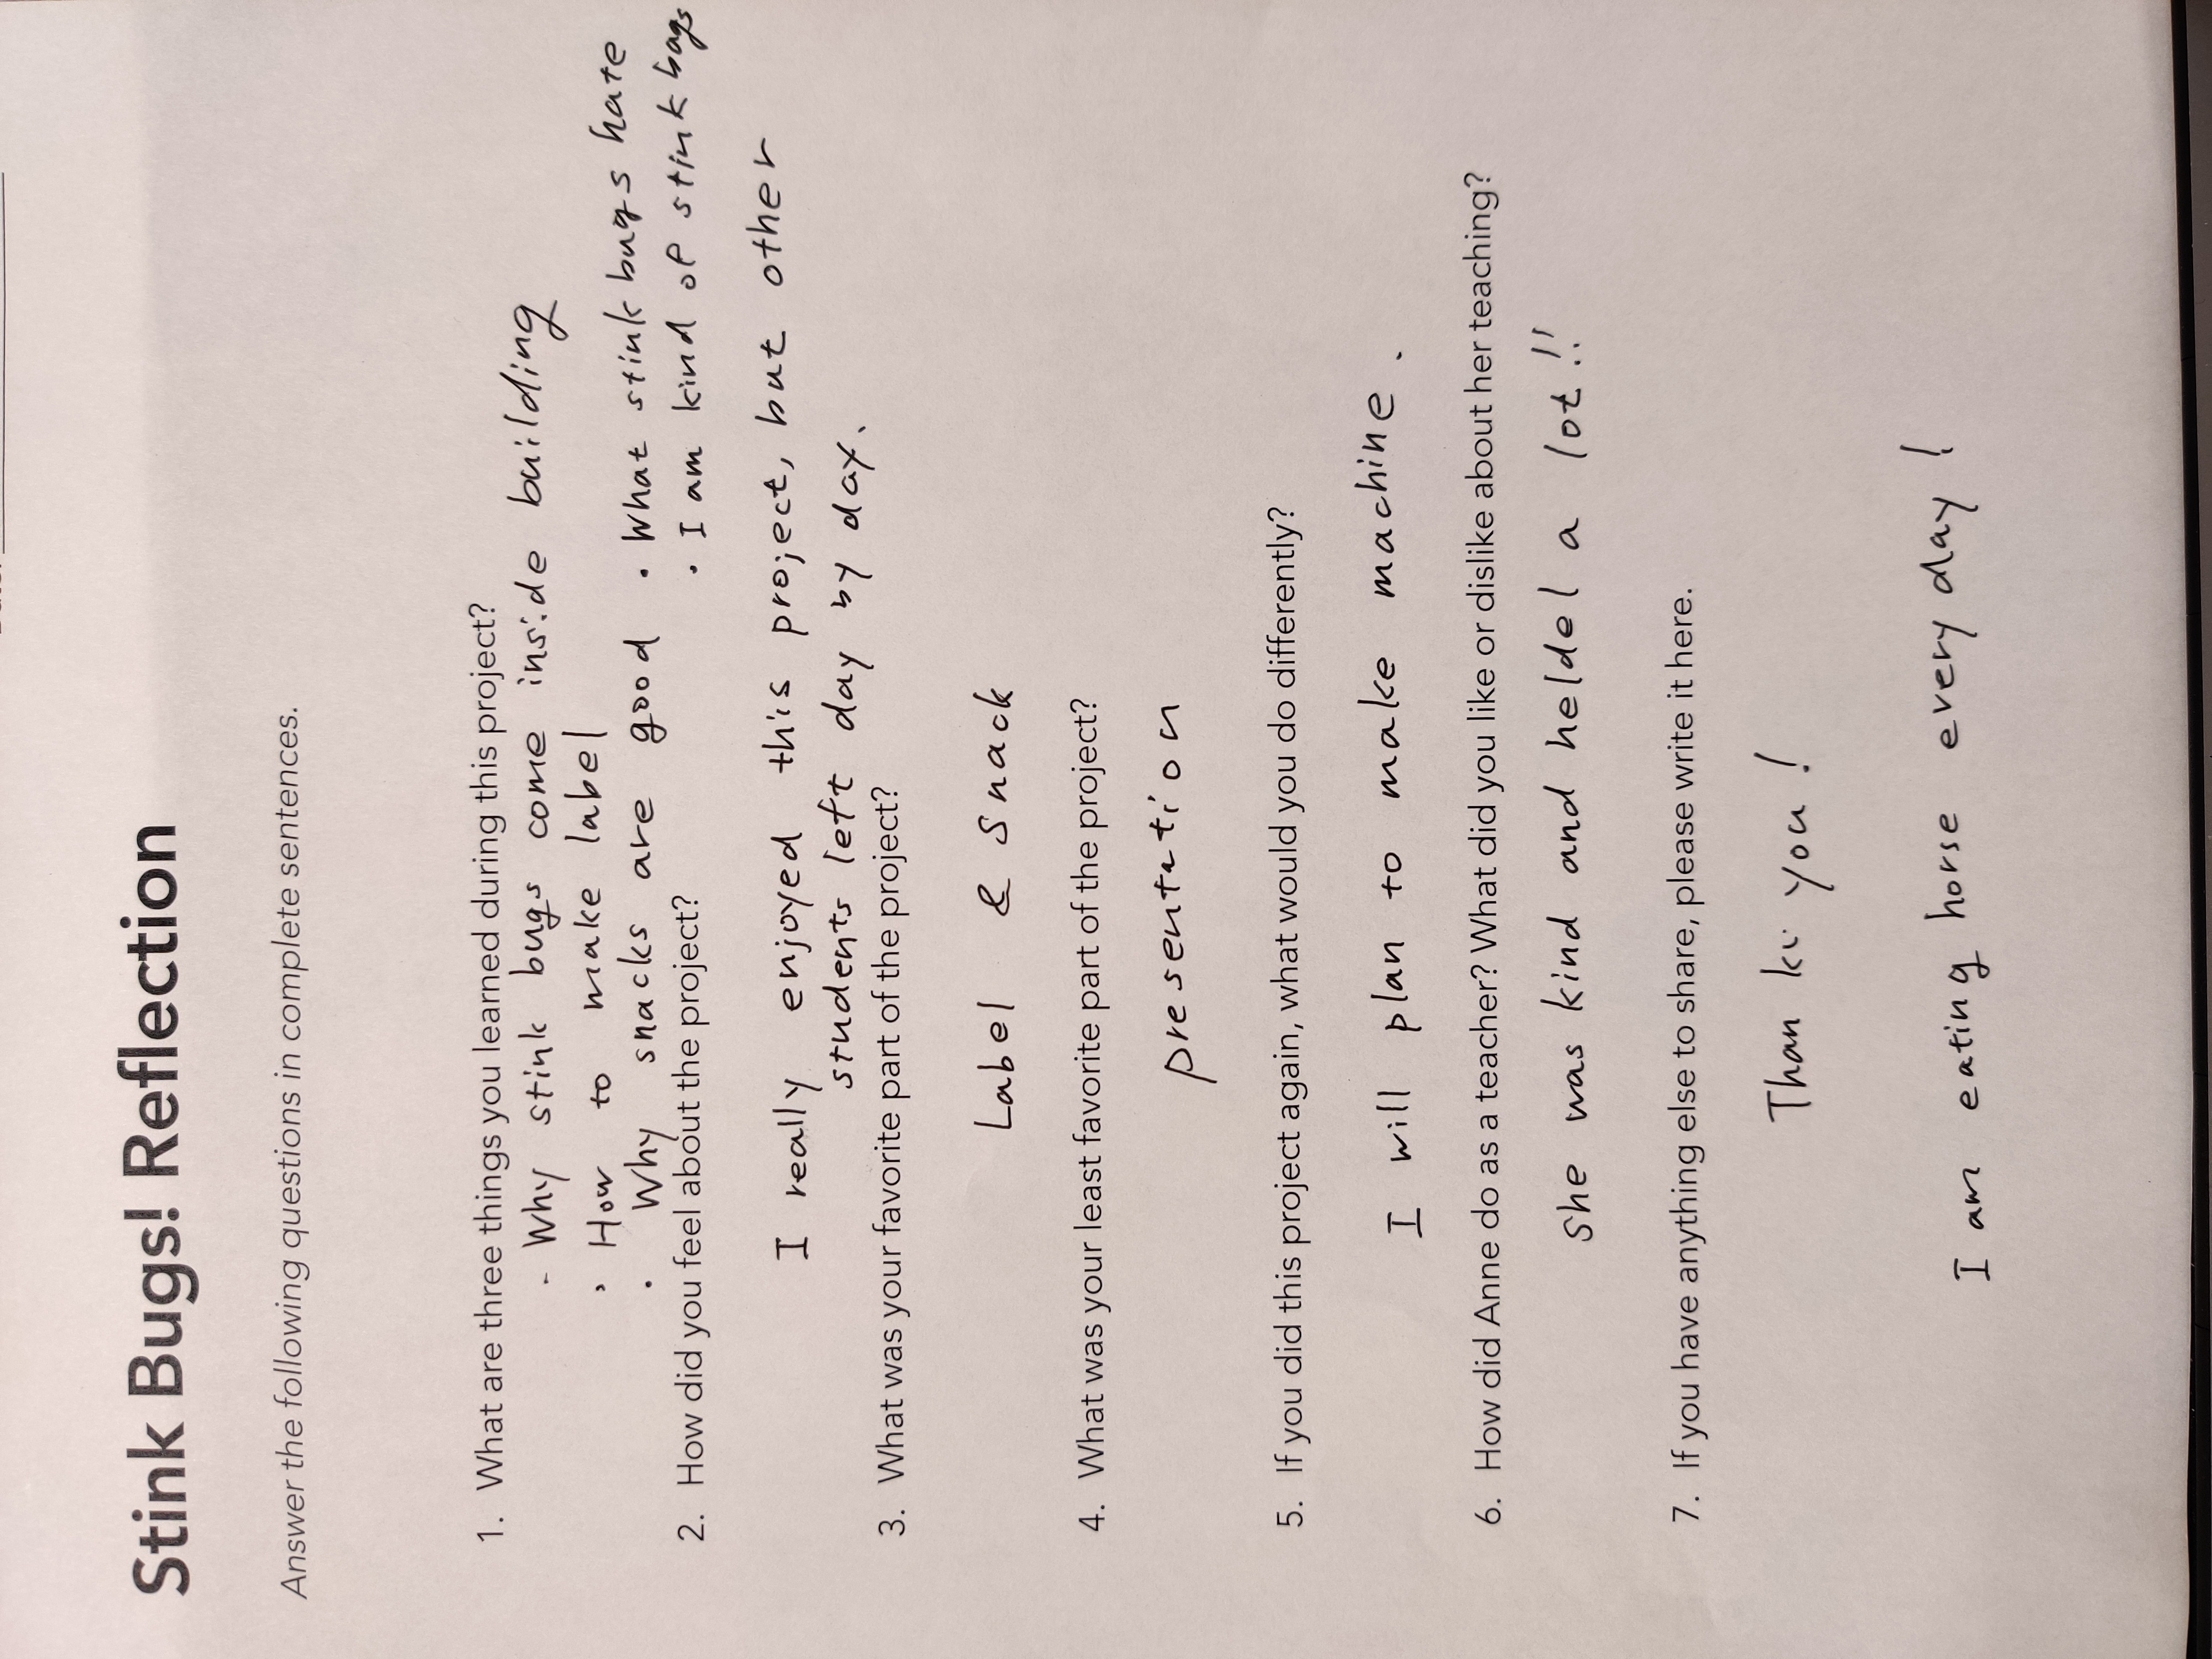 Stink Bugs! Reflection
Answer the following questions in complete sentences.
1. What are three things you learned during this project?
- Why stink bugs come inside building
• How to make label
• Why snacks are good
• What stink bugs hate
• I am kind of stink bags
2. How did you feel about the project?
I really enjoyed this project, but other
students left day by day.
3. What was your favorite part of the project?
Label & snack
4. What was your least favorite part of the project?
presentation
5. If you did this project again, what would you do differently?
I will plan to make machine.
6. How did Anne do as a teacher? What did you like or dislike about her teaching?
She was kind and heldel a lot!!
7. If you have anything else to share, please write it here.
Thank you!
I am eating horse every day!